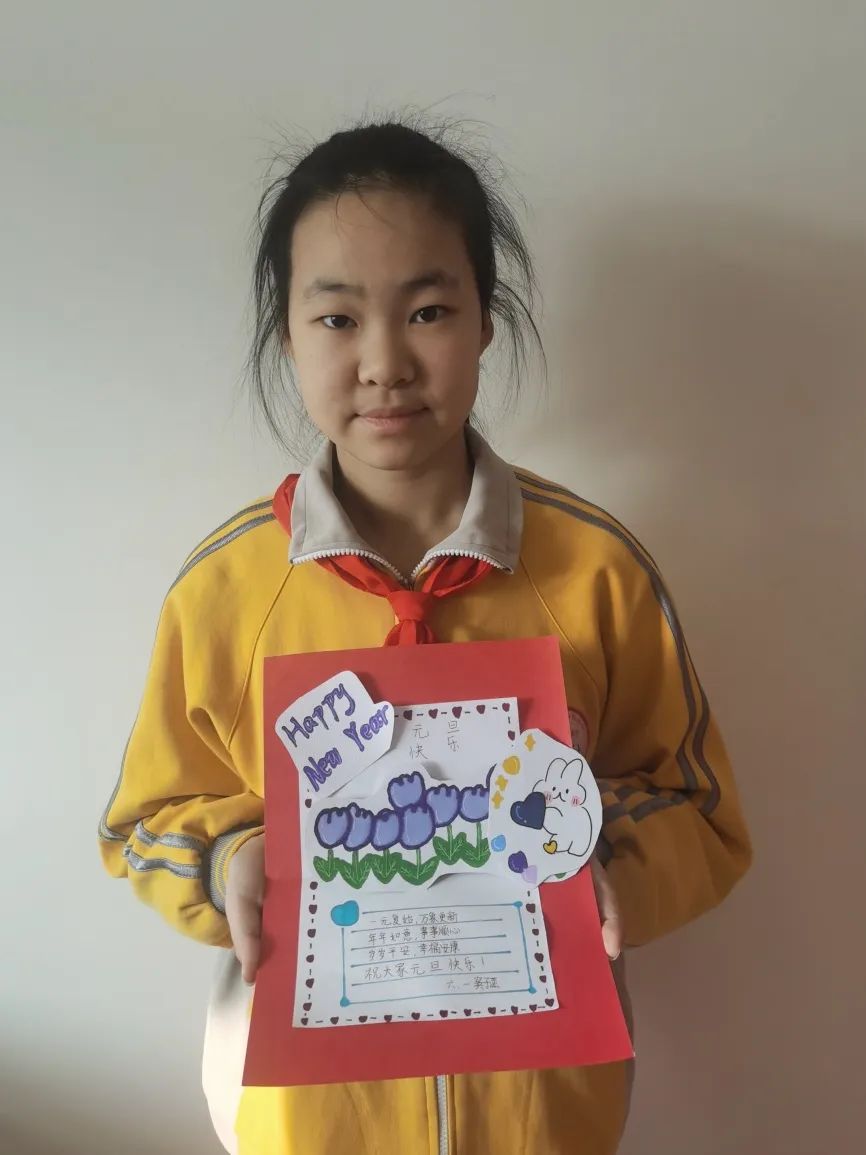 Happy
New Year
元旦
快乐
一元复始，万象更新
年年如意，事事顺心
岁岁平安，幸福安康
祝大家元旦快乐！
六.一